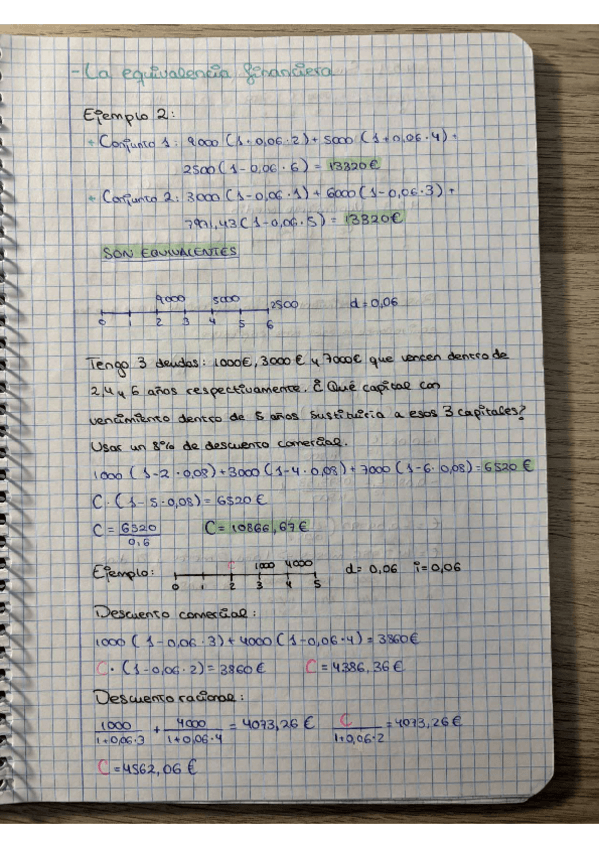 - La equivalencia financiera
Ejemplo 2:
+ Conjunto 1: 9000 (1 - 0,06 · 2) + 5000 (1 + 0,06 · 4) +
2500 (1 - 0,06 · 6) = 13320€
+ Conjunto 2: 3000 (1 - 0,06 · 1) + 6000 (1 - 0,06 · 3) +
7971,43 (1 - 0,06 · 5) = 13320€
SON EQUIVALENTES
9000 5000 2500 d = 0,06
0 1 2 3 4 5 6
Tengo 3 deudas: 1000€, 3000€ y 7000€ que vencen dentro de
2, 4 y 6 años respectivamente. ¿Qué capital con
vencimiento dentro de 5 años sustituiría a esos 3 capitales?
Usar un 8% de descuento comercial.
1000 (1 - 2 · 0,08) + 3000 (1 - 4 · 0,08) + 7000 (1 - 6 · 0,08) = 6520€
C · (1 - 5 · 0,08) = 6520€
C = 6520 / 0,6 C = 10866,67€
Ejemplo: C 1000 4000 d = 0,06 i = 0,06
0 1 2 3 4 5
Descuento comercial:
1000 (1 - 0,06 · 3) + 4000 (1 - 0,06 · 4) = 3860€
C · (1 - 0,06 · 2) = 3860€ C = 4386,36€
Descuento racional:
1000 / 1+0,06·3 + 4000 / 1+0,06·4 = 4073,26€ C / 1+0,06·2 = 4073,26€
C = 4562,06€